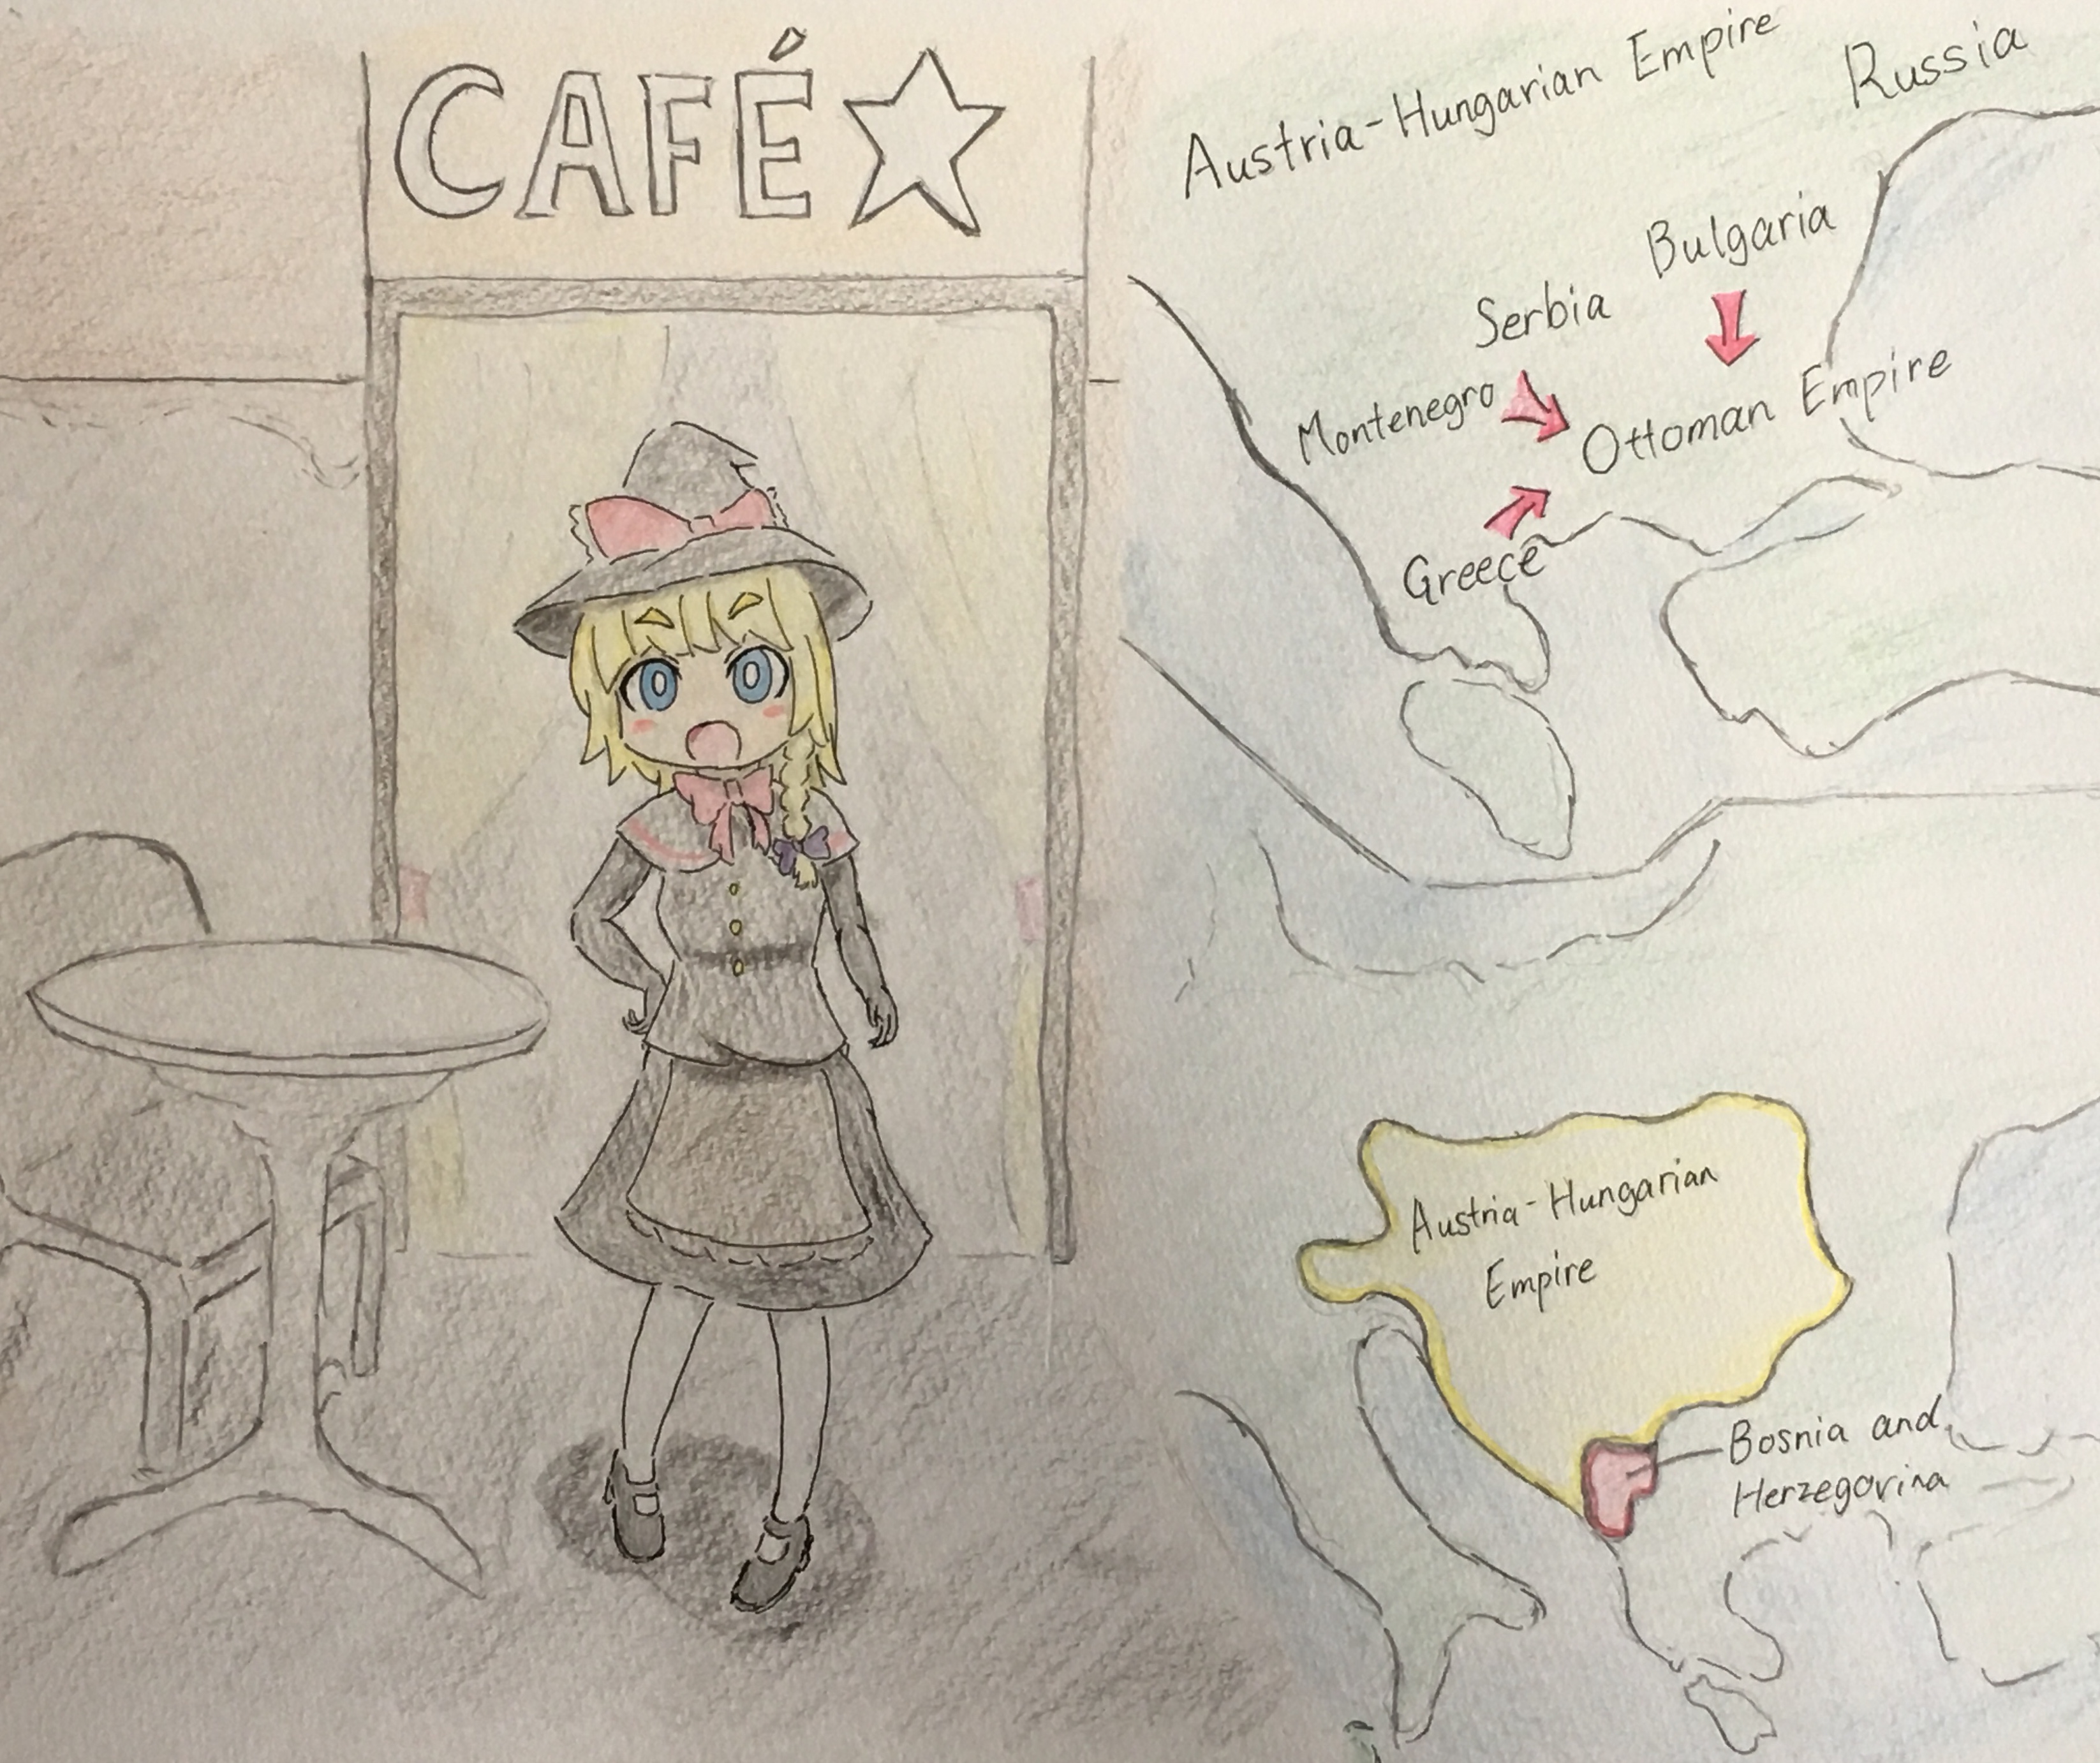 CAFÉ☆
Austria-Hungarian Empire
Russia
Bulgaria
Serbia
Montenegro
Ottoman Empire
Greece
Austria-Hungarian
Empire
Bosnia and
Herzegovina